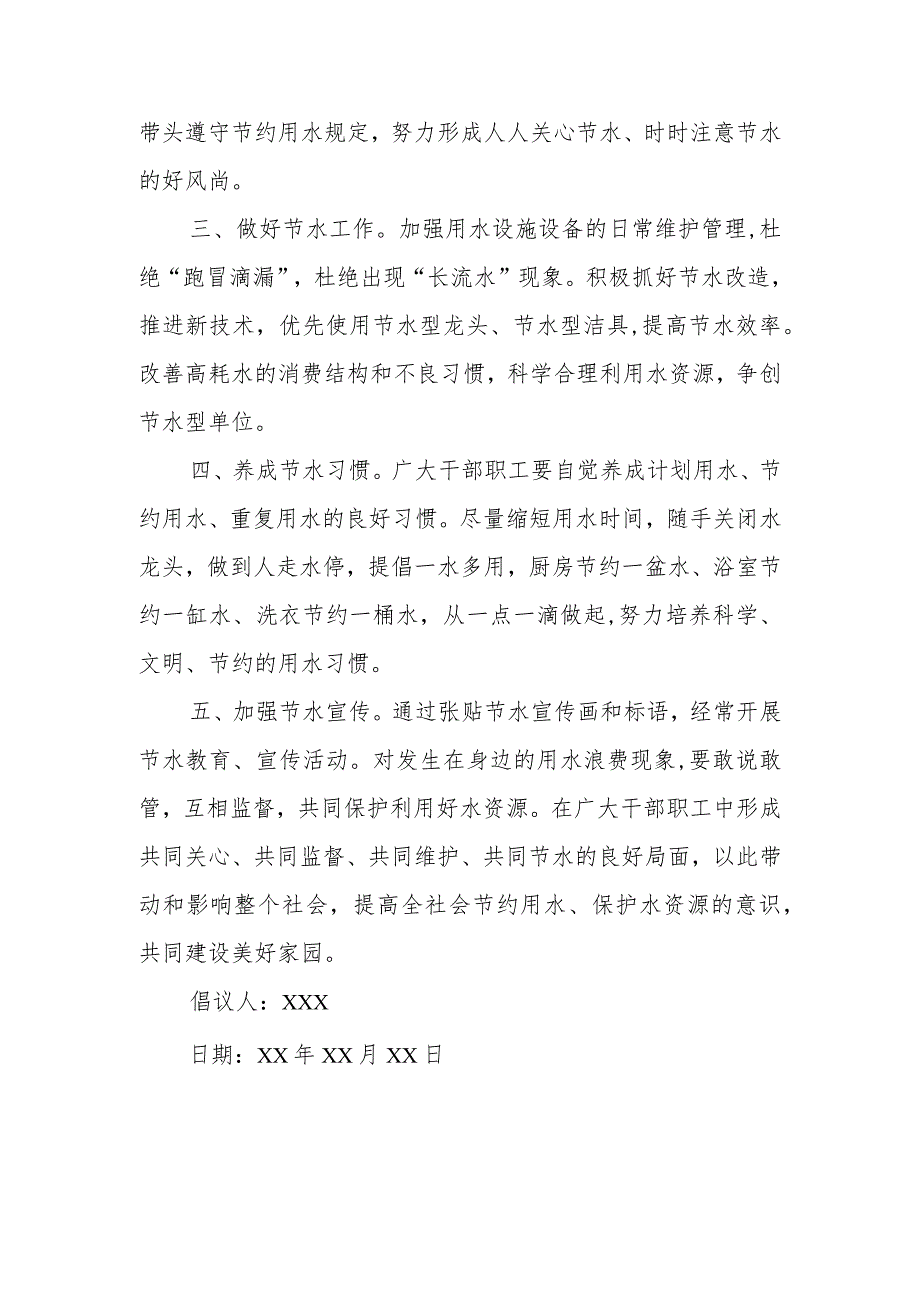 带头遵守节约用水规定，努力形成人人关心节水、时时注意节水
的好风尚。
三、做好节水工作。加强用水设施设备的日常维护管理,杜
绝“跑冒滴漏”，杜绝出现“长流水”现象。积极抓好节水改造，
推进新技术，优先使用节水型龙头、节水型洁具,提高节水效率。
改善高耗水的消费结构和不良习惯，科学合理利用水资源，争创
节水型单位。
四、养成节水习惯。广大干部职工要自觉养成计划用水、节
约用水、重复用水的良好习惯。尽量缩短用水时间，随手关闭水
龙头，做到人走水停，提倡一水多用，厨房节约一盆水、浴室节
约一缸水、洗衣节约一桶水，从一点一滴做起,努力培养科学、
文明、节约的用水习惯。
五、加强节水宣传。通过张贴节水宣传画和标语，经常开展
节水教育、宣传活动。对发生在身边的用水浪费现象,要敢说敢
管，互相监督，共同保护利用好水资源。在广大干部职工中形成
共同关心、共同监督、共同维护、共同节水的良好局面，以此带
动和影响整个社会，提高全社会节约用水、保护水资源的意识，
共同建设美好家园。
倡议人：XXX
日期：XX 年 XX 月 XX 日